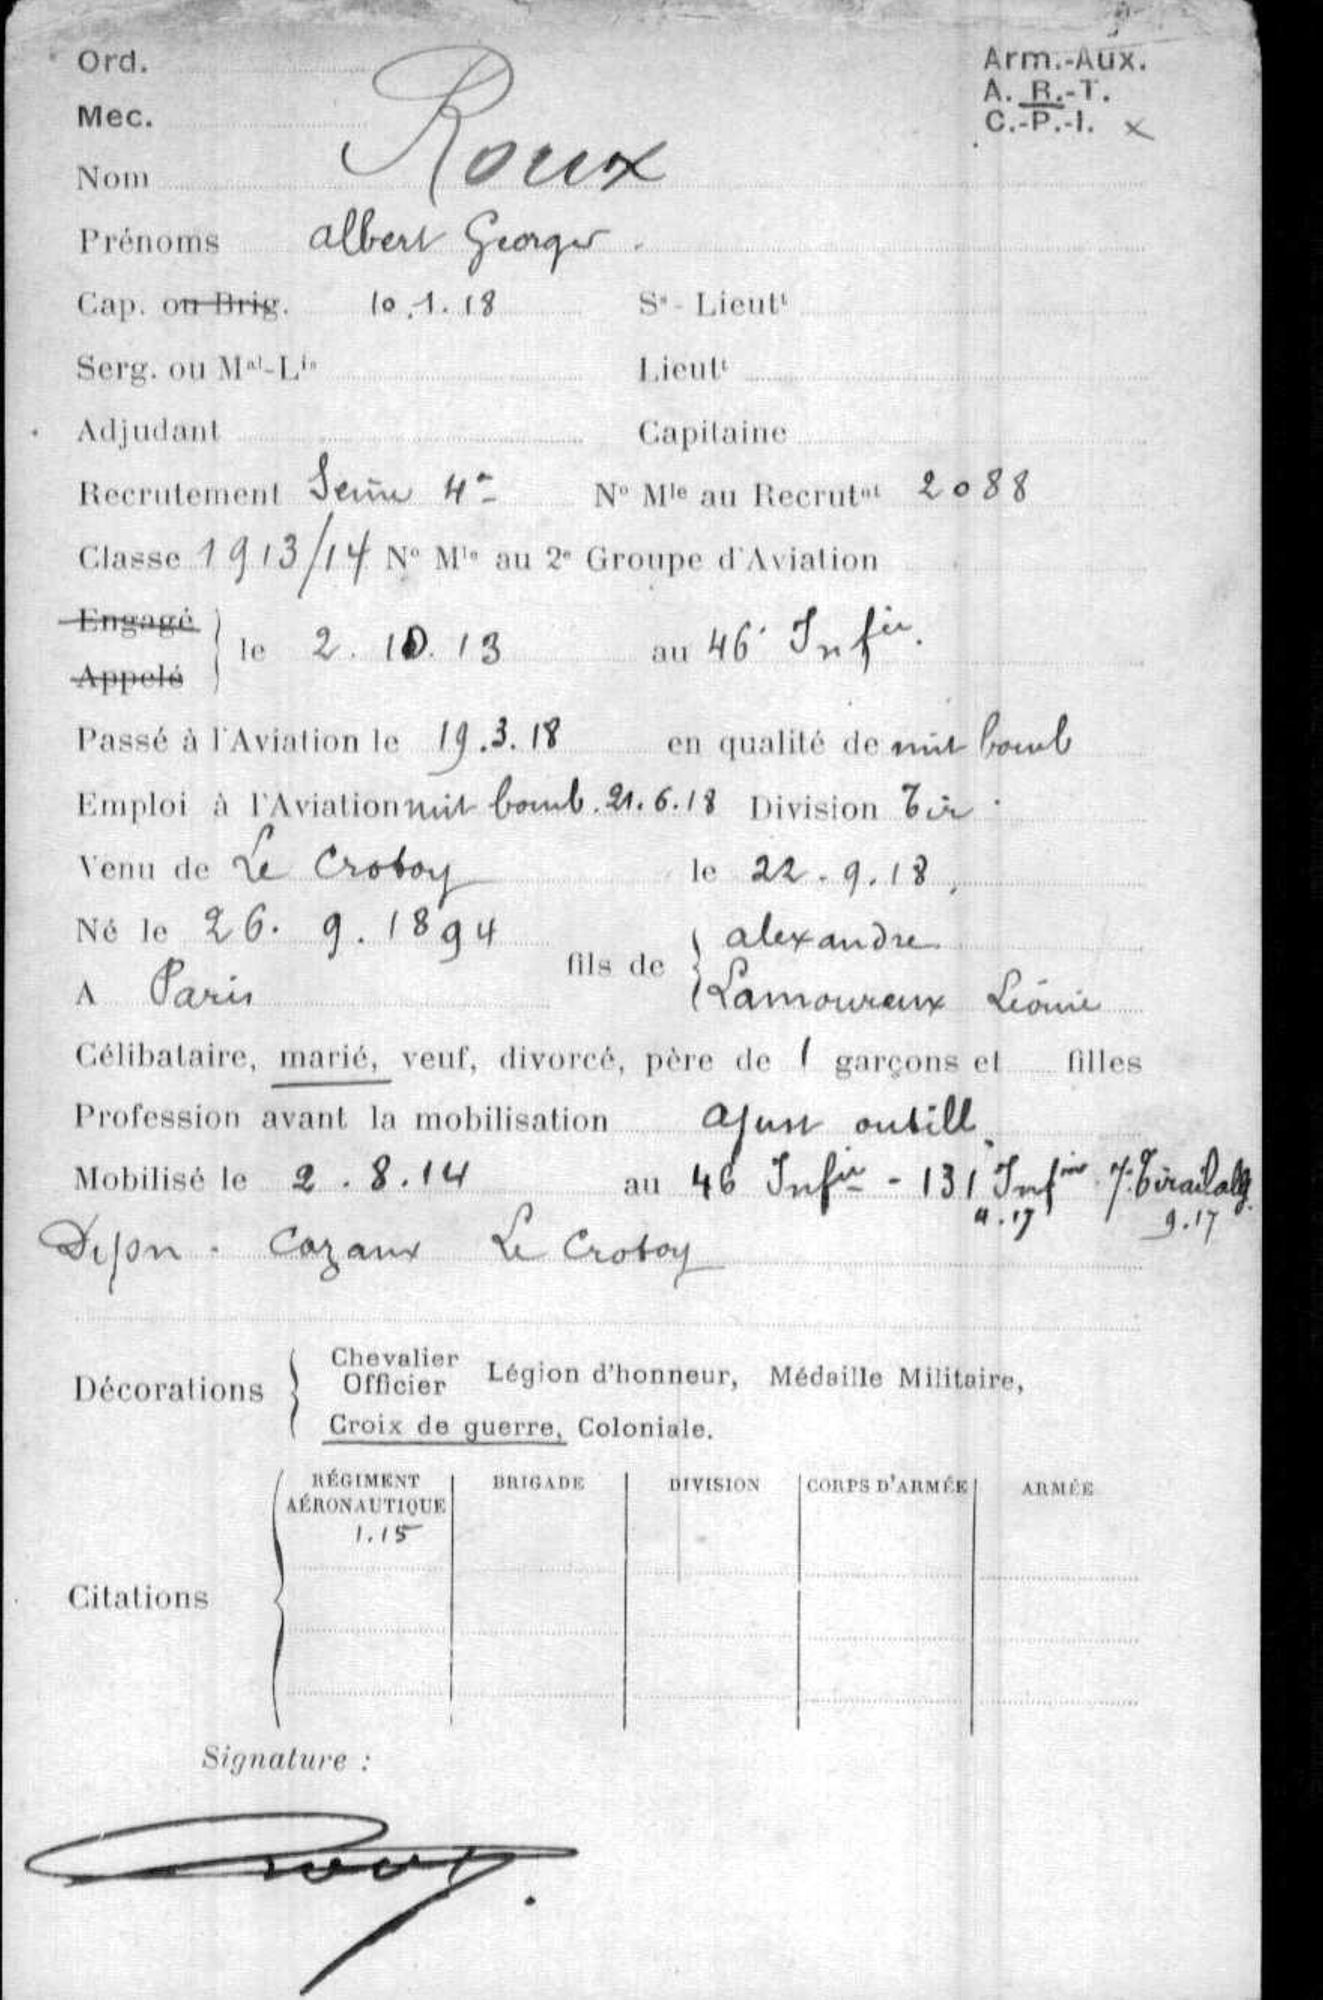 Ord.
Arm.-Aux.
Mec.
A. R.-T.
C.-P.-I. x
Nom Roux
Prénoms Albert Georges
Cap. ou Brig. 10.1.18 Ss - Lieutt
Serg. ou Mal-Lis Lieutt
Adjudant Capitaine
Recrutement Seine 4e No Mle au Recrutnt 2088
Classe 1913/14 No Mle au 2e Groupe d'Aviation
Engagé
Appelé
le 2.10.13 au 46e Infie.
Passé à l'Aviation le 19.3.18 en qualité de mit bomb
Emploi à l'Aviation mit bomb. 21.6.18 Division Tir.
Venu de Le Crotoy le 22.9.18
Né le 26.9.1894 fils de Alexandre
A Paris Lamoureux Léonie
Célibataire, marié, veuf, divorcé, père de 1 garçons et filles
Profession avant la mobilisation Ajust outill.
Mobilisé le 2.8.14 au 46 Infie - 131 Infie 7. Tirail alg.
9.17
Dijon. Cazaux Le Crotoy
Décorations Chevalier Officier Légion d'honneur, Médaille Militaire,
Croix de guerre, Coloniale.
Citations
RÉGIMENT AÉRONAUTIQUE BRIGADE DIVISION CORPS D'ARMÉE ARMÉE
1.15
Signature :
Roux